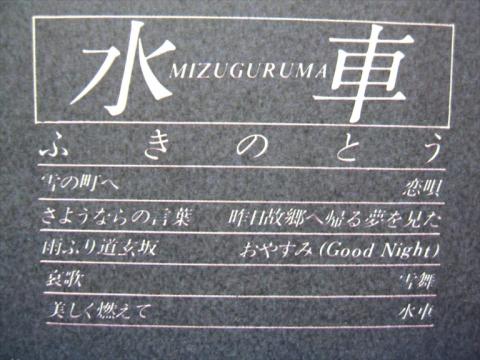 水 MIZUGURUMA 車
ふきのとう
雪の町へ 恋唄
さようならの言葉 昨日故郷へ帰る夢を見た
雨ふり道玄坂 おやすみ (Good Night)
哀歌 雪舞
美しく燃えて 水車